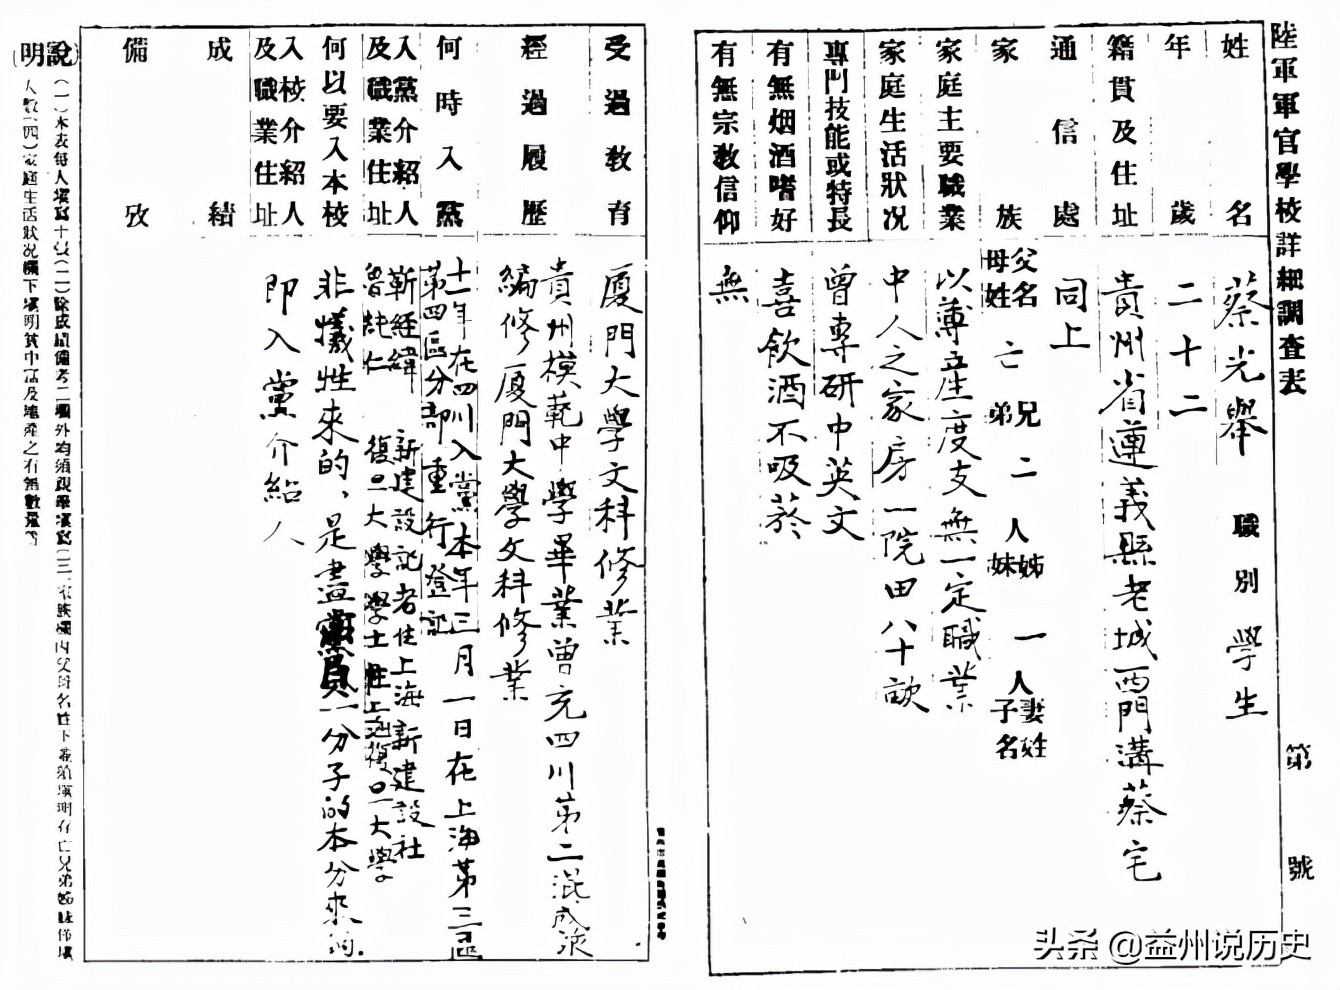 陸軍軍官學校詳細調查表
第 號
姓名 蔡光舉 職別 學生
年歲 二十二
籍貫及住址 貴州省遵義縣老城西門溝蔡宅
通信處 同上
家族 父名母姓 亡 兄弟 二人 姊妹 一人 妻姓子名
家庭主要職業 以薄產度支無一定職業
家庭生活狀况 中人之家房一院田八十畝
專門技能或特長 曾專研中英文
有無烟酒嗜好 喜飲酒不吸菸
有無宗教信仰 無
受過教育 厦門大學文科修業
經過履歷 貴州模範中學畢業曾充四川第二混成旅
編修厦門大學文科修業
何時入黨 十一年在四川入黨本年三月一日在上海第三區
第四區分部重行登記
入黨介紹人及職業住址 靳經緯 新建設記者住上海新建設社
魯純仁 復旦大學學士住上海復旦大學
何以要入本校 非犧牲來的、是盡黨員一分子的本分來的.
入校介紹人及職業住址 即入黨介紹人
成績
備攷
(說明)
(一)本表每人填寫十張(二)除成績備考二欄外均須親筆填寫(三)家族欄內父母名姓下並須填明存亡兄弟姊妹係填
人數(四)家庭生活狀况欄下填明其中富及地產之有無數量等
头条 @益州说历史